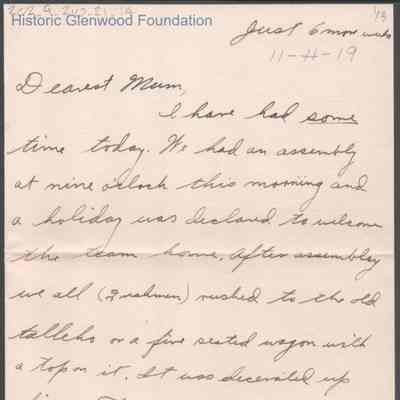 Historic Glenwood Foundation
1/3
Just 6 more weeks
11-4-19
Dearest Mum,
I have had some
time today. We had an assembly
at nine o'clock this morning and
a holiday was declared to welcome
the team home. After assembly
we all (Freshmen) rushed to the old
tallcho or a five seated wagon with
a top on it. It was decorated up